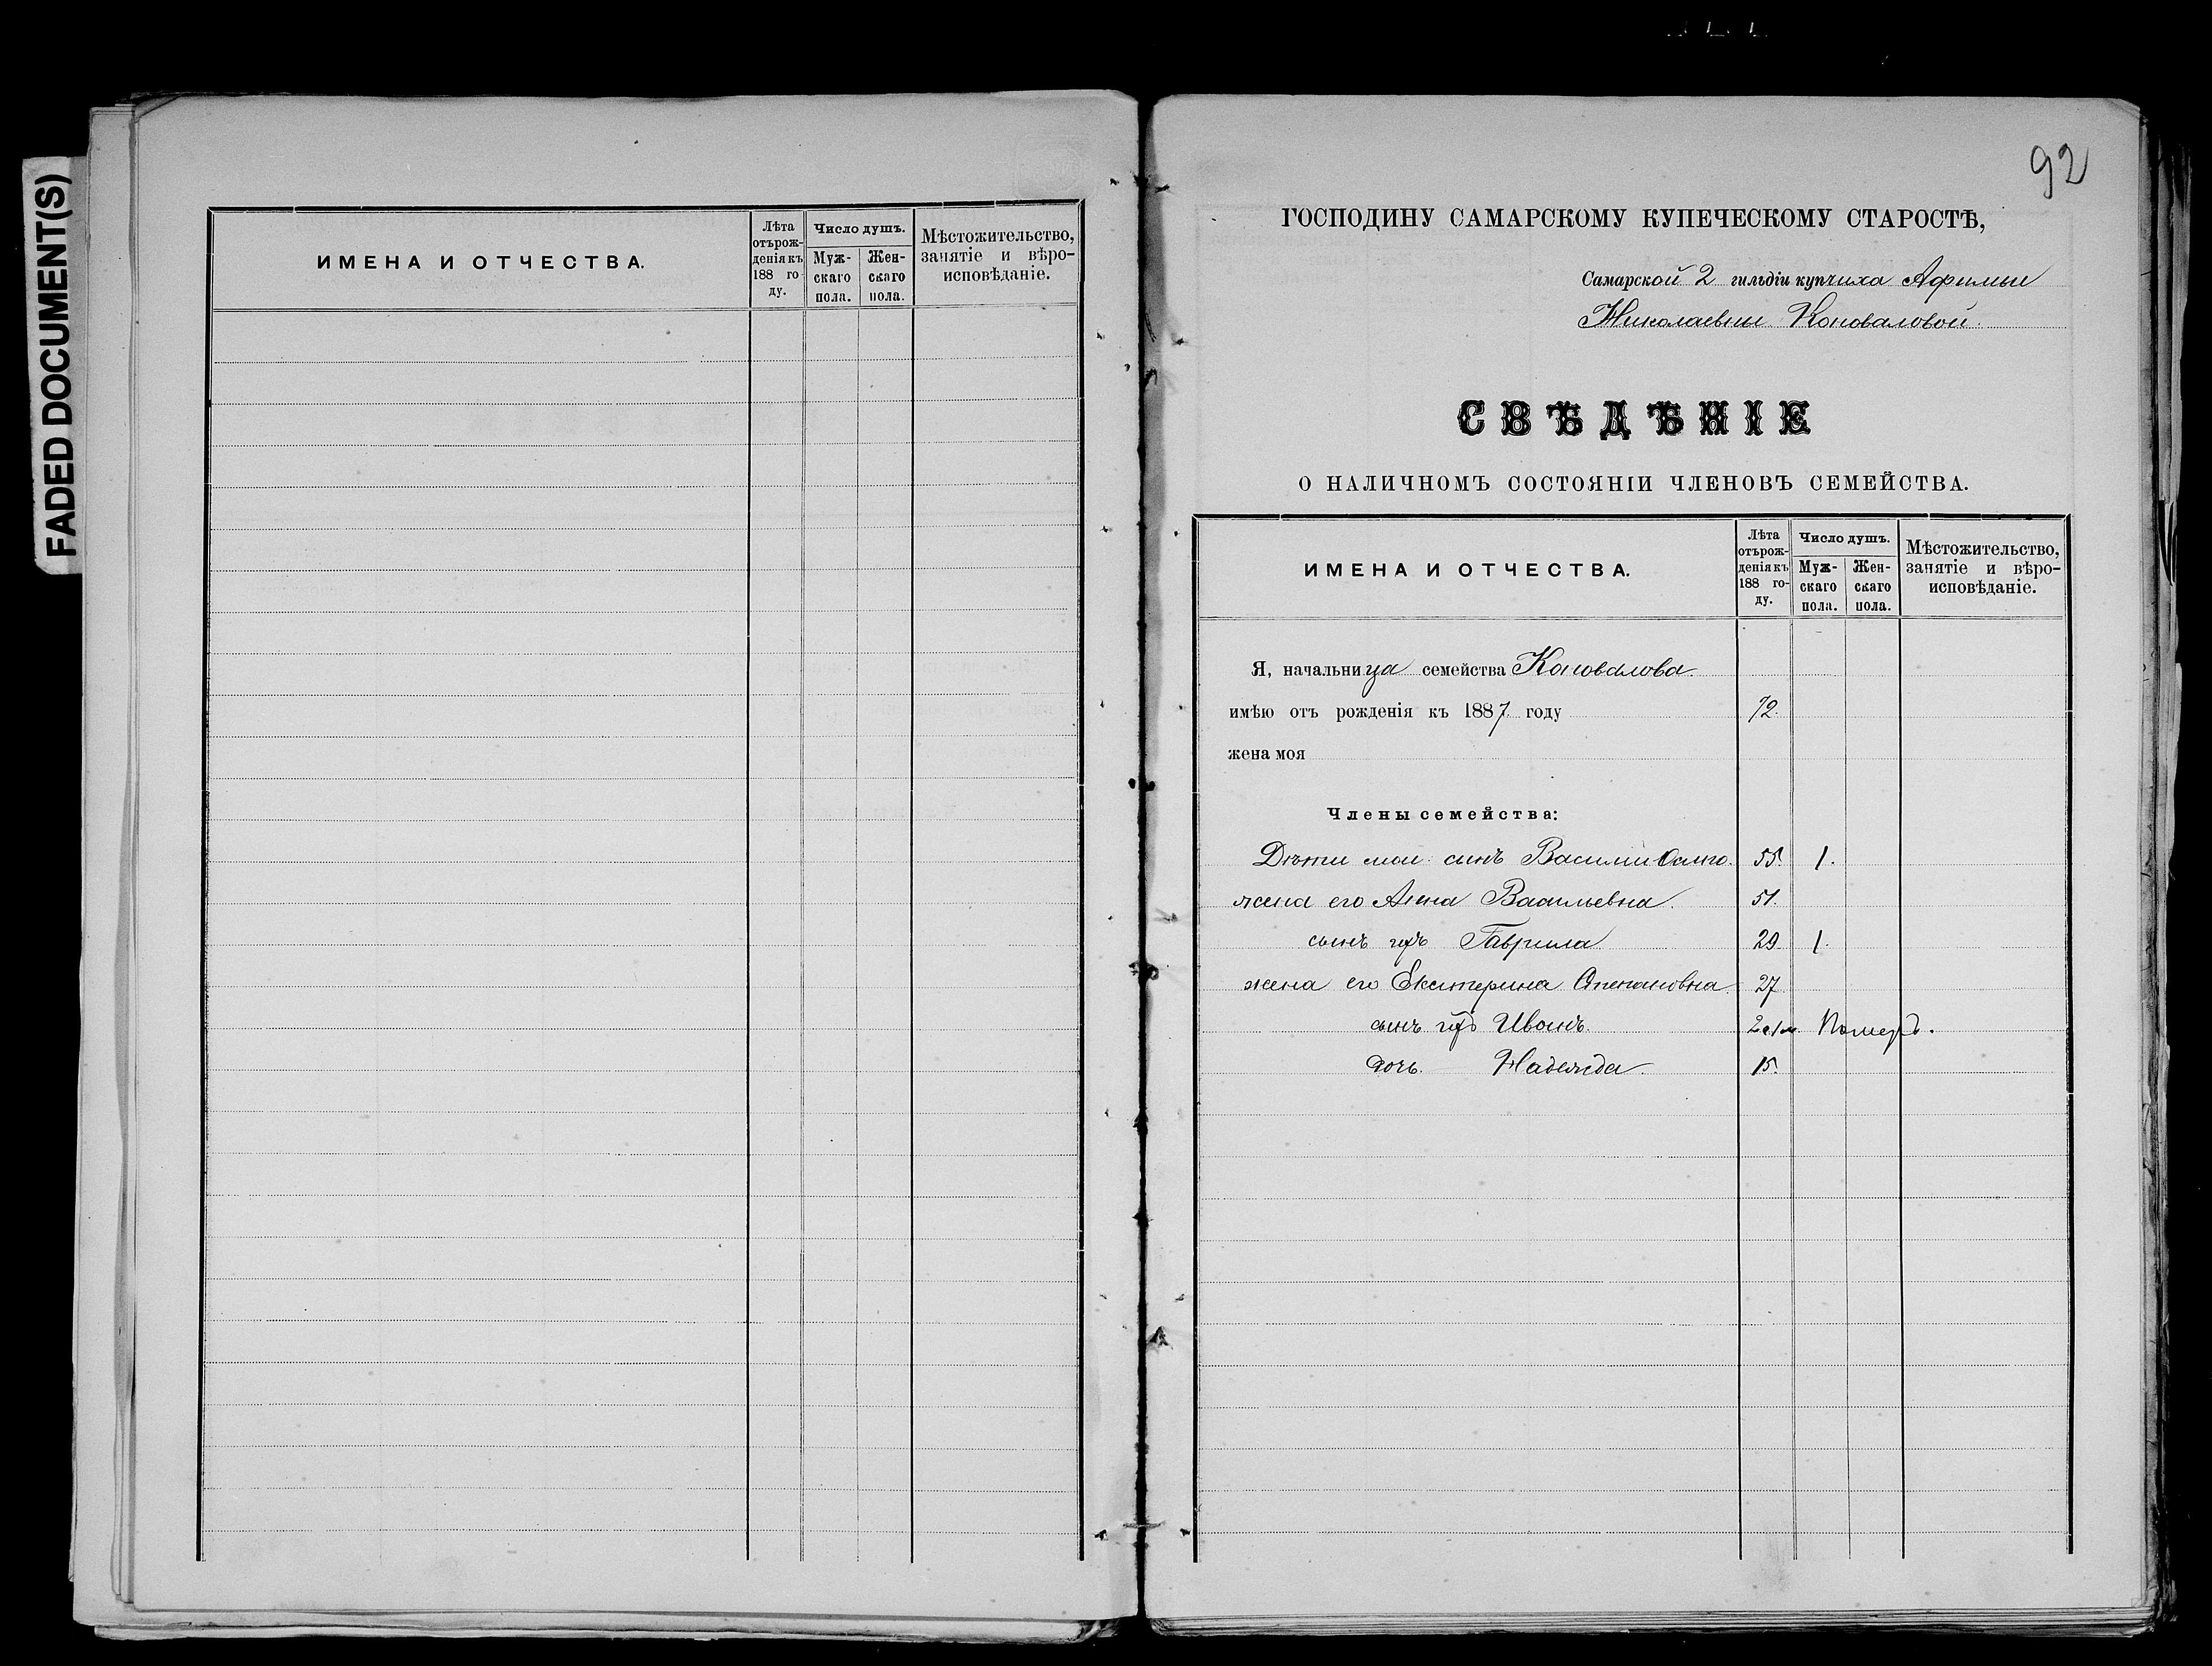 FADED DOCUMENT(S)
ИМЕНА И ОТЧЕСТВА.
Лѣта отърожденiя къ 188 году.
Число душъ.
Мужскаго пола.
Женскаго пола.
Мѣстожительство, занятiе и вѣроисповѣданiе.
92
ГОСПОДИНУ САМАРСКОМУ КУПЕЧЕСКОМУ СТАРОСТѢ,
Самарской 2 гильдiи купчиха Афимьи
Николаевны Коноваловой.
СВѢДѢНIЕ
О НАЛИЧНОМЪ СОСТОЯНIИ ЧЛЕНОВЪ СЕМЕЙСТВА.
ИМЕНА И ОТЧЕСТВА.
Лѣта отърожденiя къ 188 году.
Число душъ.
Мужскаго пола.
Женскаго пола.
Мѣстожительство, занятiе и вѣроисповѣданiе.
Я, начальница семейства Коновалова.
имѣю отъ рожденiя къ 1887 году 72.
жена моя
Члены семейства:
Дѣти мои: сынъ Василiй 55. 1.
жена его Анна Васильевна. 51.
сынъ ихъ Гаврила 29. 1.
жена его Екатерина Степановна. 27
сынъ ихъ Иванъ. Померъ.
дочь. Надежда. 15.